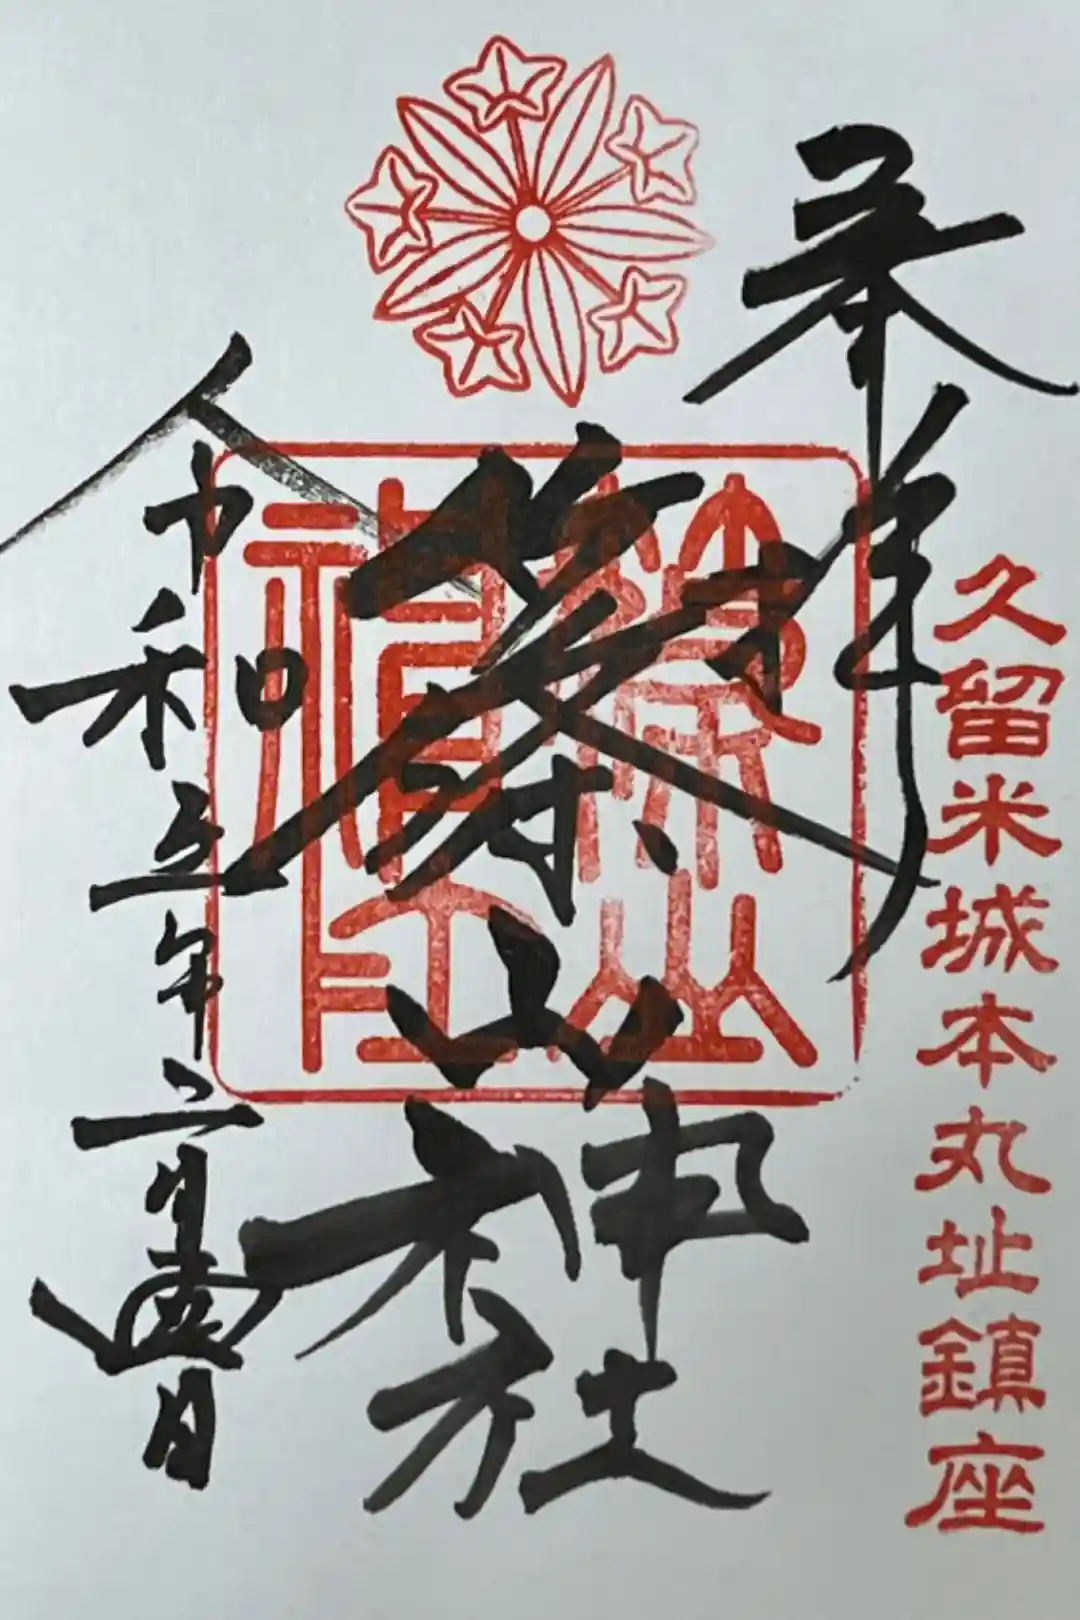 久留米城本丸址鎮座
奉拝
篠山神社
令和五年二月日